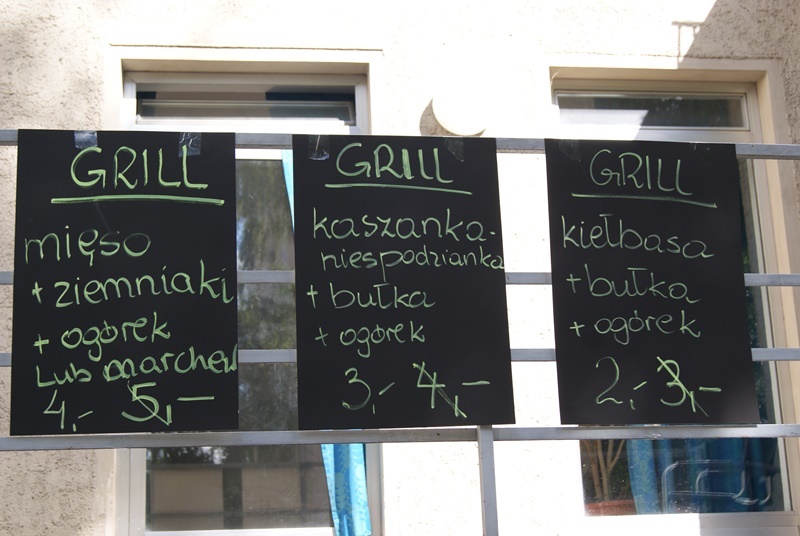 GRILL
mięso
+ ziemniaki
+ ogórek
Lub marchew
4,- 5,-
GRILL
kaszanka-
niespodzianka
+ bułka
+ ogórek
3,- 4,-
GRILL
kiełbasa
+ bułka
+ ogórek
2,- 3,-